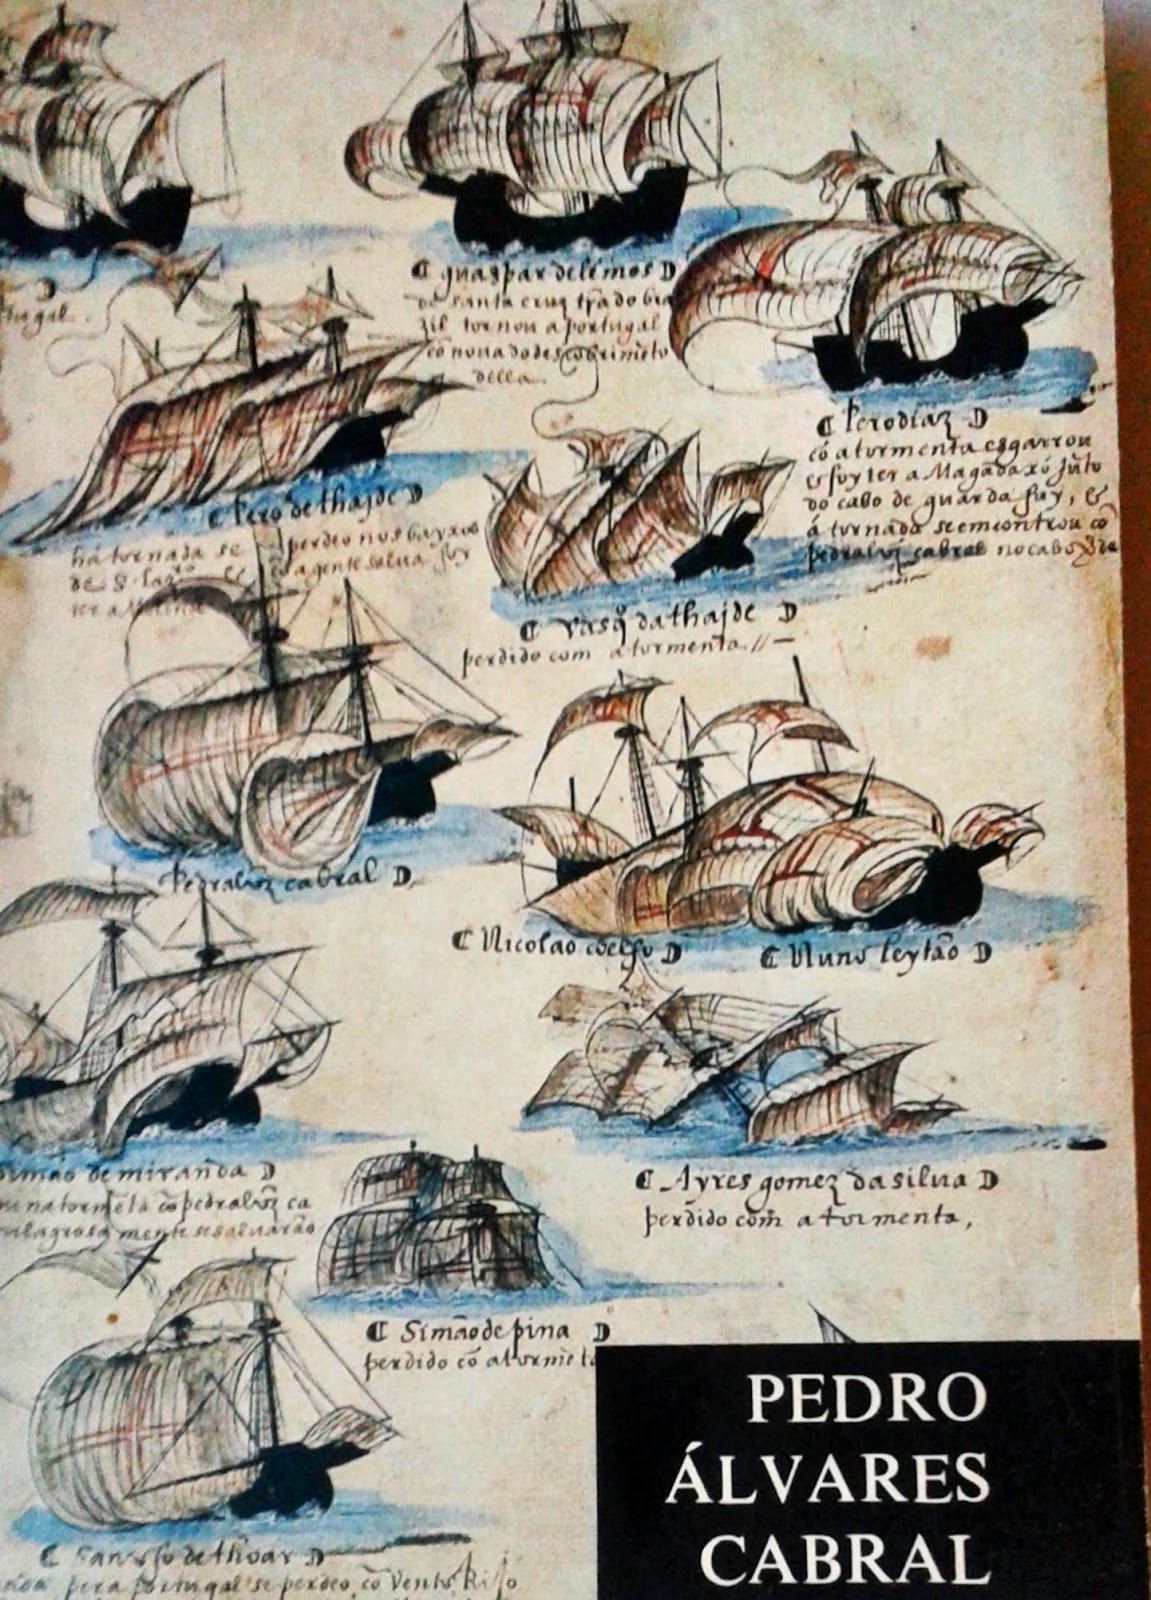 tugal.
₵ guaspar de lemos D
da santa cruz trã do bra
zil tornou a portugal
cõ noua do descobrimẽto
della.
₵ Pero diaz D
cõ a tormenta esgarrou
& foy ter a Magadaxó jũto
do cabo de guarda fuy, &
á tornada se emcontrou cõ
pedraluz cabral no cabo &
₵ Pero de thajde D
há tornada se perdeo nos bayxos
de S. laz cõ a gente salua foy
ter a
₵ vasq̃ da thajde D
perdido com a tormenta. //
Pedraluz cabral D.
₵ Nicolao coelho D
₵ Nuno leytão D
simão de miranda D
na tormẽta cõ pedraluz ca
milagrosa mente se saluarão
₵ Ayres gomez da silua D
perdido com̃ a tormenta,
₵ Simão de pina D
perdido cõ a tormẽta
₵ de thoar D
pera portugal se perdeo cõ vento Rijo
PEDRO
ÁLVARES
CABRAL